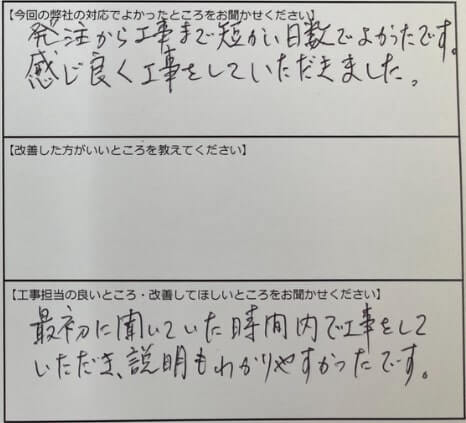 【今回の弊社の対応でよかったところをお聞かせください】
発注から工事まで短かい日数でよかったです。
感じ良く工事をしていただきました。
【改善した方がいいところを教えてください】
【工事担当の良いところ・改善してほしいところをお聞かせください】
最初に聞いていた時間内で工事をして
いただき、説明もわかりやすかったです。